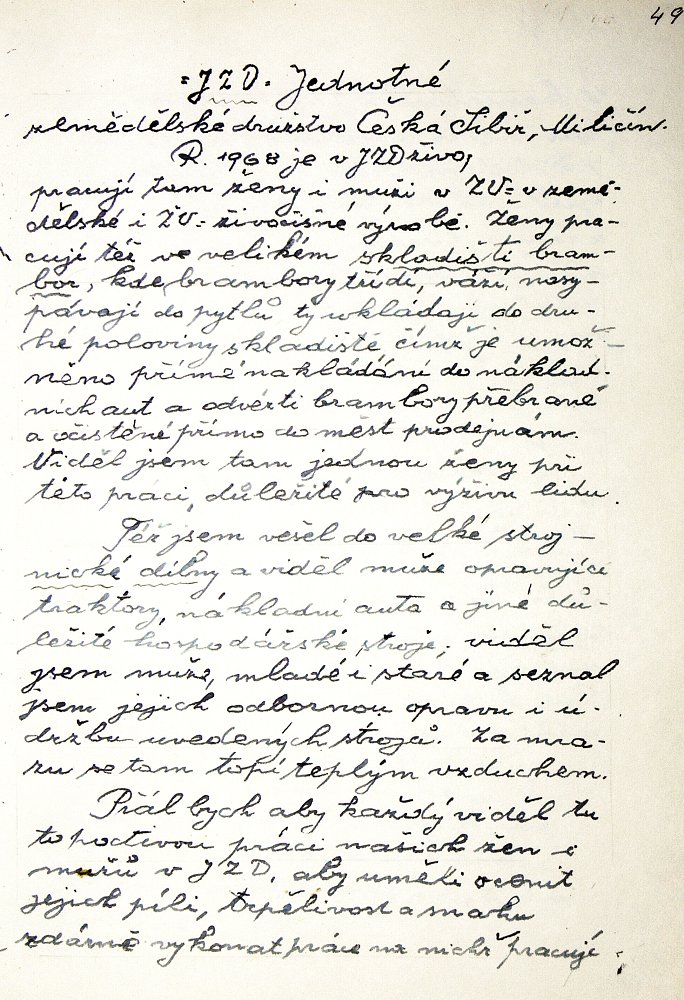 49
= JZD. Jednotné
zemědělské družstvo Česká Sibiř, Miličín.
R. 1968 je v JZD živo,
pracují tam ženy i muži v ZV = v země-
dělské i ŽV = živočišné výrobě. Ženy pra-
cují též ve velikém skladišti bram-
bor, kde brambory třídí, váží, nasy-
pávají do pytlů ty vkládají do dru-
hé poloviny skladiště čímž je umož-
něno přímé nakládání do náklad-
ních aut a odvézti brambory přebrané
a očistěné přímo do měst prodejnám.
Viděl jsem tam jednou ženy při
této práci, důležité pro výživu lidu.
Též jsem vešel do velké stroj-
nické dílny a viděl muže opravující
traktory, nákladní auta a jiné dů-
ležité hospodářské stroje, viděl
jsem muže, mladé i staré a seznal
jsem jejich odbornou opravu i ú-
držbu uvedených strojů. Za mra-
zu se tam topí teplým vzduchem.
Přál bych aby každý viděl tu
to poctivou práci našich žen i
mužů v JZD, aby uměli ocenit
jejich píli, trpělivost a snahu
zdárně vykonat práce na nichž pracují